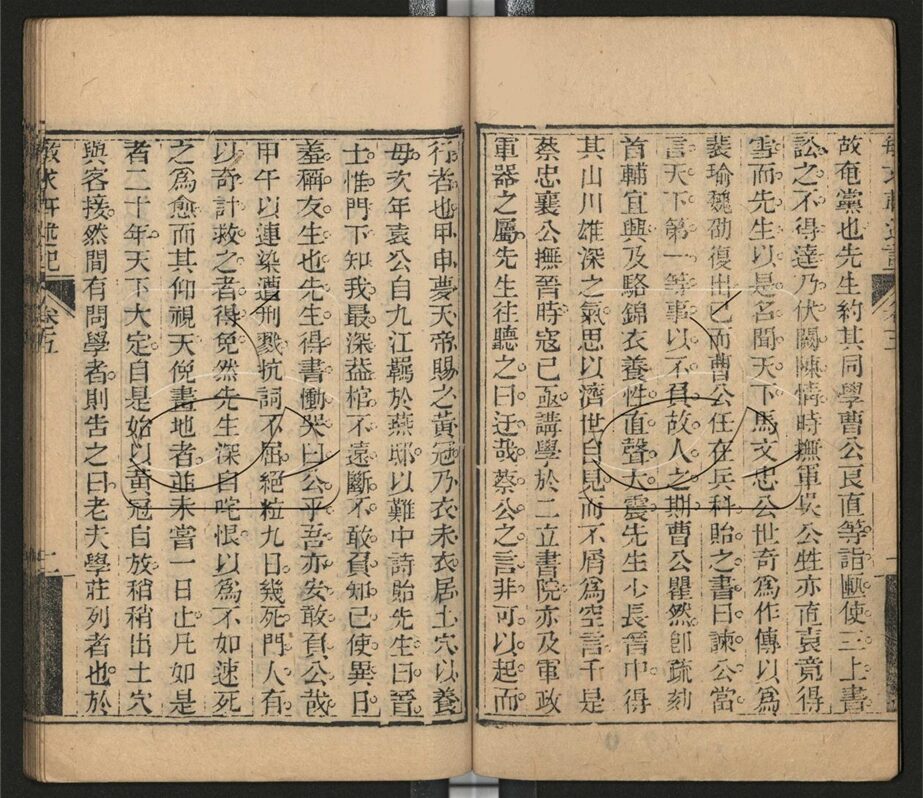 故奄黨也先生約其同學曹公良直等詣匭使三上書
訟之不得達乃伏闕陳情時撫軍吳公甡亦直袁竟得
雪而先生以是名聞天下馬文忠公世奇為作傳以為
裴瑜魏劭復出已而曹公任在兵科貽之書曰諫公當
言天下第一等事以不負故人之期曹公瞿然即疏劾
首輔宜興及駱錦衣養性直聲大震先生少長晉中得
其山川雄深之氣思以濟世自見而不屑為空言于是
蔡忠襄公撫晉時寇已亟講學於二立書院亦及軍政
軍器之屬先生往聽之曰迂哉蔡公之言非可以起而
行者也甲申夢天帝賜之黃冠乃衣未衣居土穴以養
母次年袁公自九江羈於燕邸以難中詩貽先生曰晉
士惟門下知我最深蓋棺不遠斷不敢負知已使異日
羞稱友生也先生得書慟哭曰公乎吾亦安敢負公哉
甲午以連染遭刑戮抗詞不屈絕粒九日幾死門人有
以奇計救之者得免然先生深自咤恨以為不如速死
之為愈而其仰視天俛畫地者並未嘗一日止凡如是
者二十年天下大定自是始以黃冠自放稍稍出土穴
與客接然間有問學者則告之曰老夫學莊列者也於
敏求軒述記